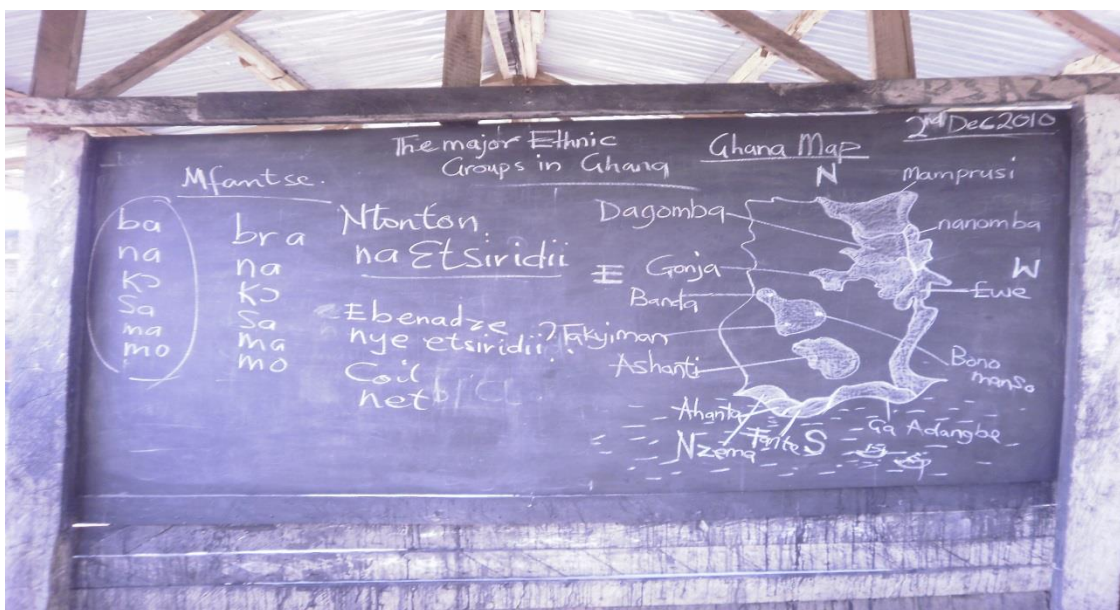 2nd Dec 2010
The major Ethnic
Groups in Ghana
Mfantse.
ba
na
kɔ
Sa
ma
mo
bra
na
kɔ
Sa
ma
mo
Ntonton
na Etsiridii
Ebenadze
nye etsiridii?
Coil
net
Ghana Map
N
Mamprusi
Dagomba
nanomba
E
Gonja
W
Banda
Ewe
Takyiman
Ashanti
Bono
manso
Ahanta
Nzema
Fante
S
Ga Adangbe